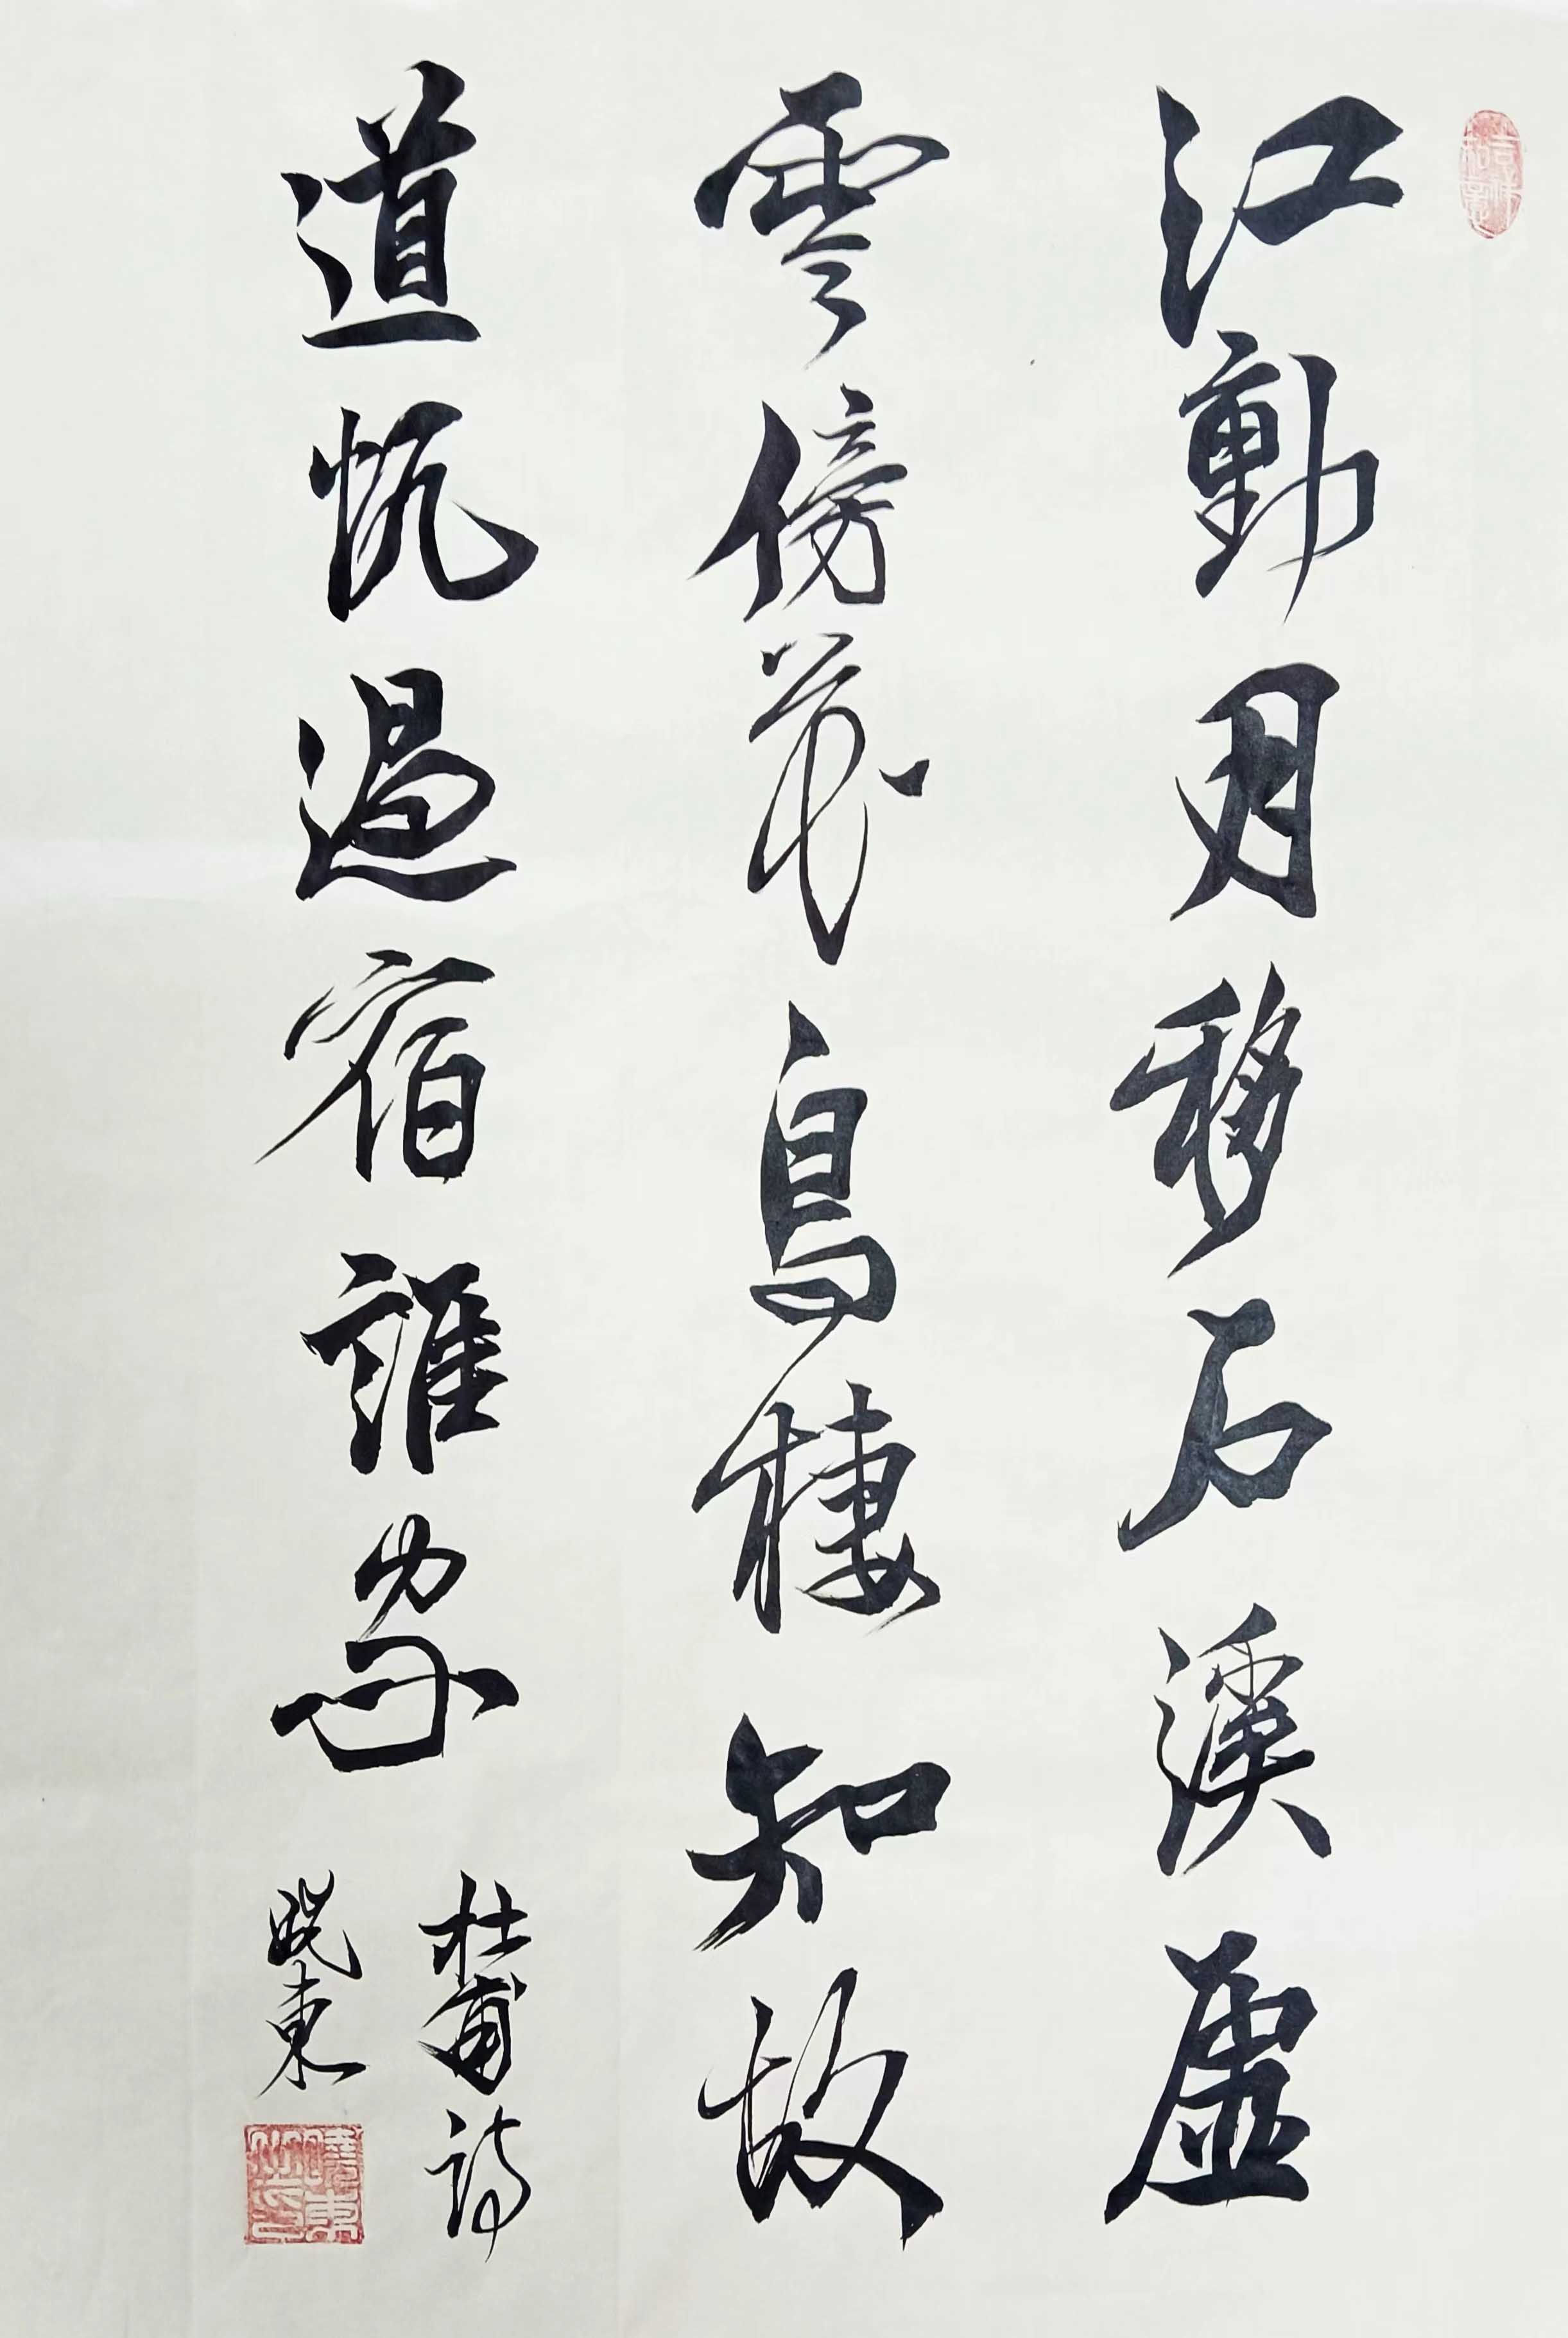 吉祥如意
江動月移石溪虛
雲傍花鳥棲知故
道帆過宿誰家
杜甫詩
曉東